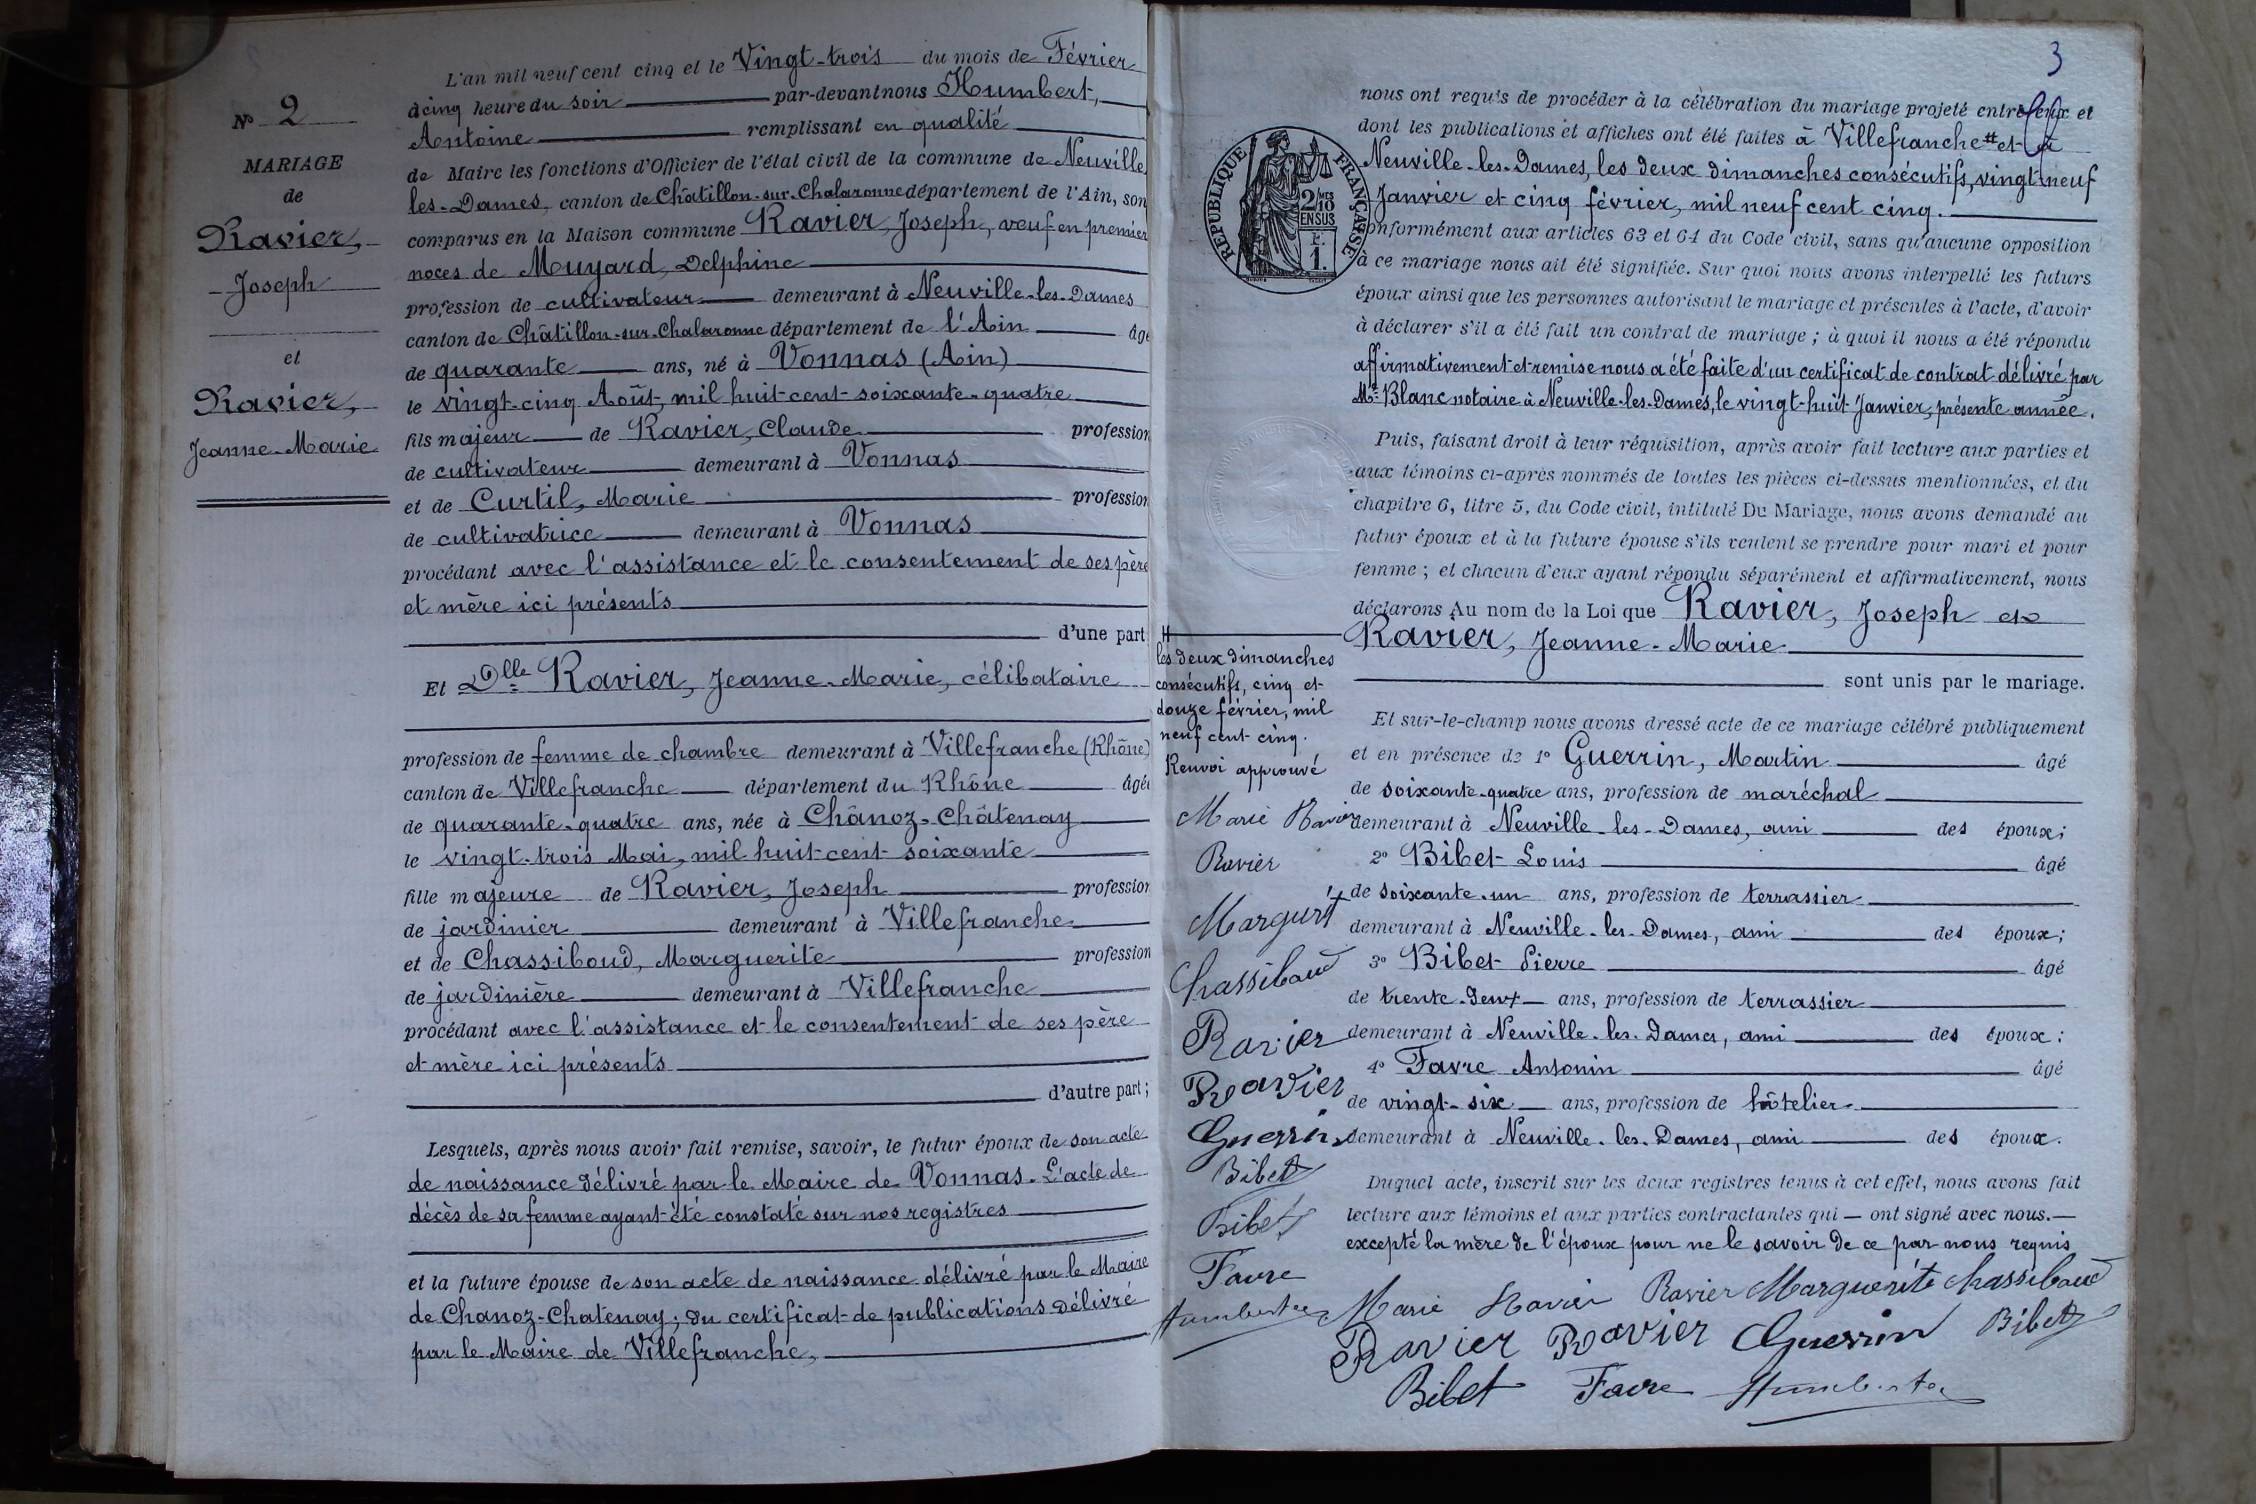 Nº 2
MARIAGE
de
Ravier,
Joseph
et
Ravier,
Jeanne-Marie
L'an mil neuf cent cinq et le Vingt-trois du mois de Février
à cinq heure du soir par-devant nous Humbert,
Antoine remplissant en qualité
de Maire les fonctions d'Officier de l'état civil de la commune de Neuville
les-Dames, canton de Châtillon-sur-Chalaronne département de l'Ain, son
comparus en la Maison commune Ravier, Joseph, veuf en premier
noces de Muyard, Delphine
profession de cultivateur demeurant à Neuville-les-Dames
canton de Châtillon-sur-Chalaronne département de l'Ain âgé
de quarante ans, né à Vonnas (Ain)
le vingt-cinq Août, mil huit-cent-soixante-quatre
fils majeur de Ravier, Claude profession
de cultivateur demeurant à Vonnas
et de Curtil, Marie profession
de cultivatrice demeurant à Vonnas
procédant avec l'assistance et le consentement de ses père
et mère ici présents
d'une part
Et Dlle Ravier, Jeanne-Marie, célibataire
profession de femme de chambre demeurant à Villefranche (Rhône)
canton de Villefranche département du Rhône âgée
de quarante-quatre ans, née à Chânoz-Châtenay
le vingt-trois Mai, mil huit-cent-soixante
fille majeure de Ravier, Joseph profession
de jardinier demeurant à Villefranche
et de Chassiboud, Marguerite profession
de jardinière demeurant à Villefranche
procédant avec l'assistance et le consentement de ses père
et mère ici présents
d'autre part;
Lesquels, après nous avoir fait remise, savoir, le futur époux de son acte
de naissance délivré par le Maire de Vonnas. L'acte de
décès de sa femme ayant été constaté sur nos registres
et la future épouse de son acte de naissance délivré par le Maire
de Chanoz-Chatenay; du certificat de publications délivré
par le Maire de Villefranche,
3
RÉPUBLIQUE FRANÇAISE
2/10
EN SUS
1.
nous ont requis de procéder à la célébration du mariage projeté entre eux et
dont les publications et affiches ont été faites à Villefranche # et à
Neuville-les-Dames, les deux dimanches consécutifs, vingt-neuf
Janvier et cinq février, mil neuf cent cinq.
conformément aux articles 63 et 64 du Code civil, sans qu'aucune opposition
à ce mariage nous ait été signifiée. Sur quoi nous avons interpellé les futurs
époux ainsi que les personnes autorisant le mariage et présentes à l'acte, d'avoir
à déclarer s'il a été fait un contrat de mariage; à quoi il nous a été répondu
affirmativement et remise nous a été faite d'un certificat de contrat délivré par
Me Blanc notaire à Neuville-les-Dames, le vingt-huit Janvier, présente année.
Puis, faisant droit à leur réquisition, après avoir fait lecture aux parties et
aux témoins ci-après nommés de toutes les pièces ci-dessus mentionnées, et du
chapitre 6, titre 5, du Code civil, intitulé Du Mariage, nous avons demandé au
futur époux et à la future épouse s'ils veulent se prendre pour mari et pour
femme; et chacun d'eux ayant répondu séparément et affirmativement, nous
déclarons Au nom de la Loi que Ravier, Joseph et
Ravier, Jeanne-Marie
sont unis par le mariage.
Et sur-le-champ nous avons dressé acte de ce mariage célébré publiquement
et en présence de 1º Guerrin, Martin âgé
de soixante-quatre ans, profession de maréchal
demeurant à Neuville-les-Dames, ami des époux;
2º Bibet Louis âgé
de soixante-un ans, profession de terrassier
demeurant à Neuville-les-Dames, ami des époux;
3º Bibet Pierre âgé
de trente-deux ans, profession de terrassier
demeurant à Neuville-les-Dames, ami des époux:
4º Favre Antonin âgé
de vingt-six ans, profession de hôtelier
demeurant à Neuville-les-Dames, ami des époux.
Duquel acte, inscrit sur les deux registres tenus à cet effet, nous avons fait
lecture aux témoins et aux parties contractantes qui — ont signé avec nous.—
excepté la mère de l'époux pour ne le savoir de ce par nous requis
Marie Ravier Ravier Marguerite Chassibaud
Ravier Ravier Guerrin Bibet
Bibet Favre Humbert
#
les deux dimanches
consécutifs, cinq et
douze février, mil
neuf cent cinq.
Renvoi approuvé
Marie Ravier
Ravier
Margurit
Chassibaud
Ravier
Ravier
Guerrin
Bibet
Bibet
Favre
Humbert